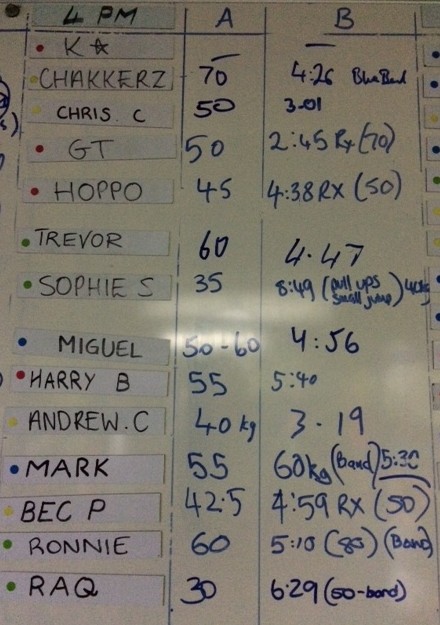 4 PM A B
K☆ — —
CHAKKERZ 70 4:26 Blue Band
CHRIS. C 50 3-01
GT 50 2:45 Rx (70)
HOPPO 45 4:38 RX (50)
TREVOR 60 4.47
SOPHIE S 35 8:49 (pull ups small jump)
MIGUEL 50-60 4:56
HARRY B 55 5:40
ANDREW.C 40 kg 3.19
MARK 55 60kg (Band) 5:30
BEC P 42.5 4:59 RX (50)
RONNIE 60 5:10 (80) (Band)
RAQ 30 6.29 (50-band)